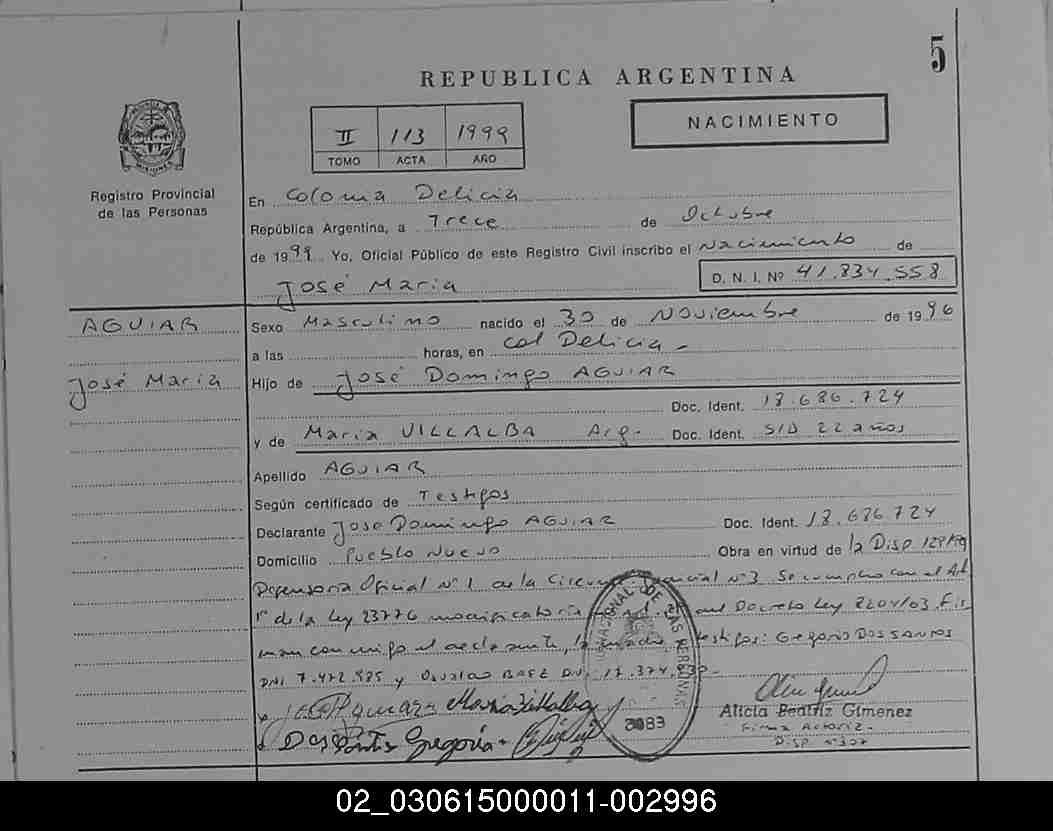 5
REPUBLICA ARGENTINA
NACIMIENTO
II 113 1999
TOMO ACTA AÑO
Registro Provincial
de las Personas
En Colonia Delicia
República Argentina, a Trece de Octubre
de 1999 Yo, Oficial Público de este Registro Civil inscribo el Nacimiento de
José Maria D. N. I. Nº 41.834.558
AGUIAR
José Maria
Sexo Masculino nacido el 30 de Noviembre de 1996
a las horas, en Col Delicia -
Hijo de José Domingo AGUIAR
Doc. Ident. 18.686.724
y de Maria VILLALBA Arg. Doc. Ident. S/D 22 años
Apellido AGUIAR
Según certificado de Testigos
Declarante Jose Domingo AGUIAR Doc. Ident. 18.686.724
Domicilio Pueblo Nuevo Obra en virtud de la Disp 129/99
Defensoria Oficial Nº 1 de la Judicial Nº 3 Se cumple con el Art
1º de la Ley 23776 modificatoria del Decreto Ley 2204/03. Fir
man conmigo el declarante, la madre, testigos: Gregorio DOS SANTOS
DNI 7.472.985 y BAEZ DNI 17.374.
Maria Villalba
Dos Santos Gregorio
2083
Alicia Beatriz Gimenez
Firma Autoriz.
Disp Nº 307
02_030615000011-002996